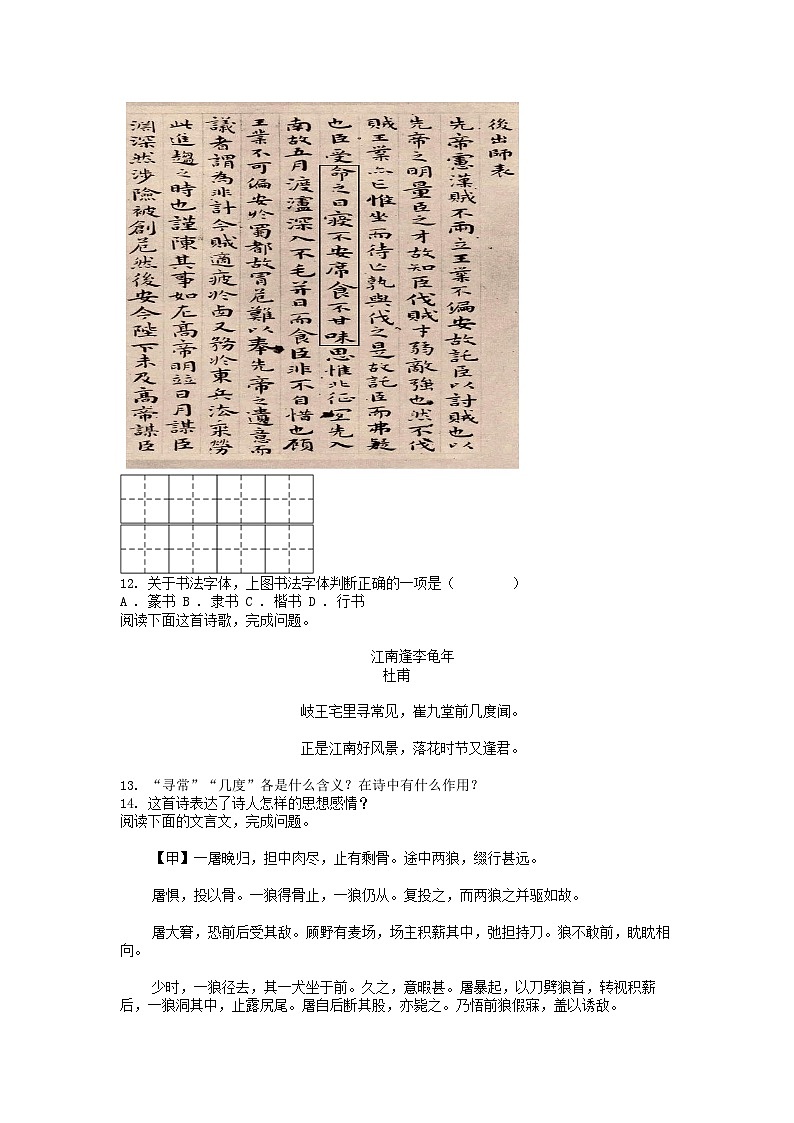 後出師表
先帝慮漢賊不兩立王業不偏安故託臣以討賊也以
先帝之明量臣之才故知臣伐賊才弱敵強也然不伐
賊王業亦亡惟坐而待亡孰與伐之是故託臣而弗疑
也臣受命之日寢不安席食不甘味思惟北征宜先入
南故五月渡瀘深入不毛并日而食臣非不自惜也顧
王業不可偏安於蜀都故冒危難以奉先帝之遺意而
議者謂為非計今賊適疲於西又務於東兵法乘勞
此進趨之時也謹陳其事如左高帝明竝日月謀臣
淵深然涉險被創危然後安今陛下未及高帝謀臣
12. 关于书法字体，上图书法字体判断正确的一项是（　　　　）
A ．篆书 B ．隶书 C ．楷书 D ．行书
阅读下面这首诗歌，完成问题。
江南逢李龟年
杜甫
岐王宅里寻常见，崔九堂前几度闻。
正是江南好风景，落花时节又逢君。
13. “寻常”“几度”各是什么含义？在诗中有什么作用？
14. 这首诗表达了诗人怎样的思想感情？
阅读下面的文言文，完成问题。
【甲】一屠晚归，担中肉尽，止有剩骨。途中两狼，缀行甚远。
屠惧，投以骨。一狼得骨止，一狼仍从。复投之，而两狼之并驱如故。
屠大窘，恐前后受其敌。顾野有麦场，场主积薪其中，弛担持刀。狼不敢前，眈眈相
向。
少时，一狼径去，其一犬坐于前。久之，意暇甚。屠暴起，以刀劈狼首，转视积薪
后，一狼洞其中，止露尻尾。屠自后断其股，亦毙之。乃悟前狼假寐，盖以诱敌。